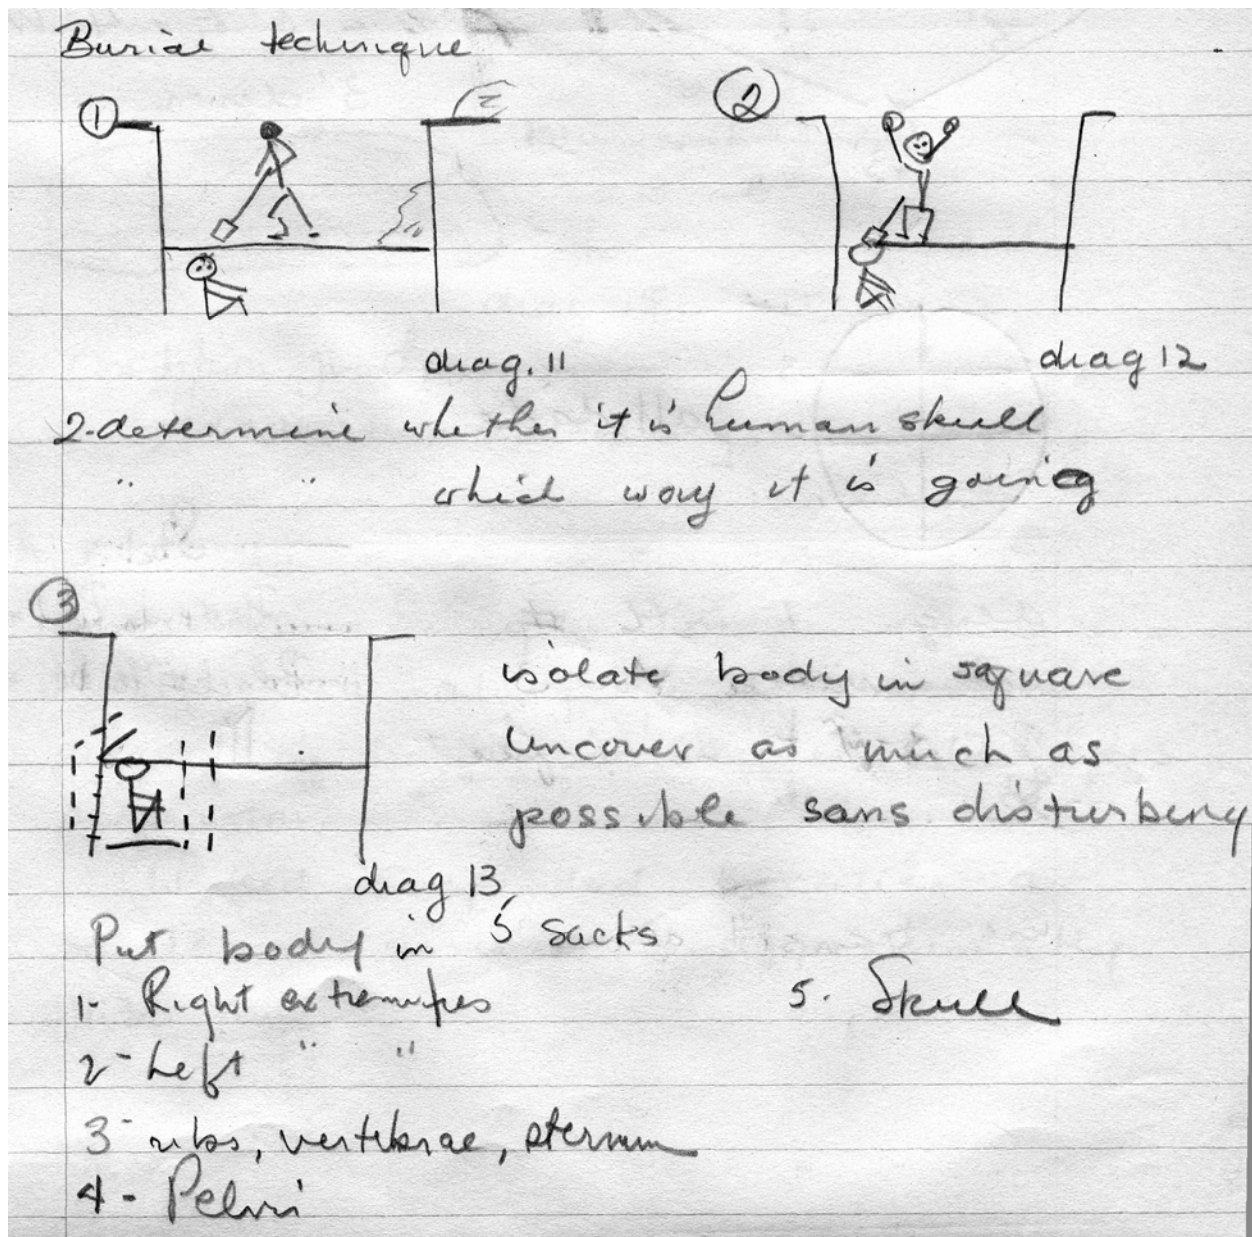 Burial technique
1
2
diag. 11
diag 12
2-determine whether it is human skull
" " which way it is going
3
isolate body in square
uncover as much as
possible sans disturbing
diag 13
Put body in 5 sacks
1- Right extremities
5. Skull
2- Left " "
3- ribs, vertebrae, sternum
4- Pelvis